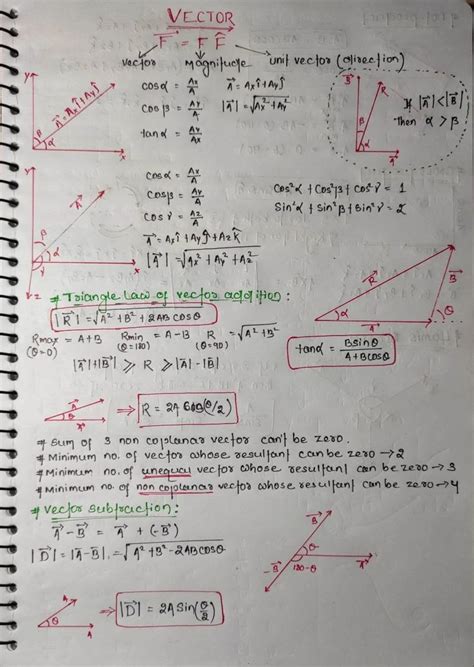 VECTOR
F⃗ = F F̂
vector magnitude unit vector (direction)
Y
A⃗ = Axî + Ayĵ
β
α
x
cosα = Ax/A
cosβ = Ay/A
tanα = Ay/Ax
A⃗ = Axî + Ayĵ
|A⃗| = √Ax² + Ay²
B⃗
R
β
α
A⃗
If |A⃗| < |B⃗|
Then α > β
Y
A⃗
β
α
γ
x
z
cosα = Ax/A
cosβ = Ay/A
cosγ = Az/A
A⃗ = Axî + Ayĵ + Azk̂
|A⃗| = √Ax² + Ay² + Az²
Cos²α + Cos²β + Cos²γ = 1
Sin²α + Sin²β + Sin²γ = 2
# Triangle Law of vector addition:
|R⃗| = √A² + B² + 2AB cosθ
Rmax = A+B Rmin = A-B R = √A² + B²
(θ=0) (θ=180) (θ=90)
|A⃗|+|B⃗| ⩾ R ⩾ |A⃗|-|B⃗|
R⃗
B⃗
α
A⃗
θ
tanα = Bsinθ/A+Bcosθ
A
θ
A
⇒ R = 2A Cos(θ/2)
# Sum of 3 non coplanar vector can't be zero.
# Minimum no. of vector whose resultant can be zero → 2
# Minimum no. of unequal vector whose resultant can be zero → 3
# Minimum no. of non coplanar vector whose resultant can be zero → 4
# Vector Subtraction:
A⃗ - B⃗ = A⃗ + (-B⃗)
|D⃗| = |A⃗-B⃗| = √A² + B² - 2ABcosθ
B⃗
θ
180-θ
A⃗
-B⃗
A
θ
A
⇒ |D⃗| = 2A Sin(θ/2)